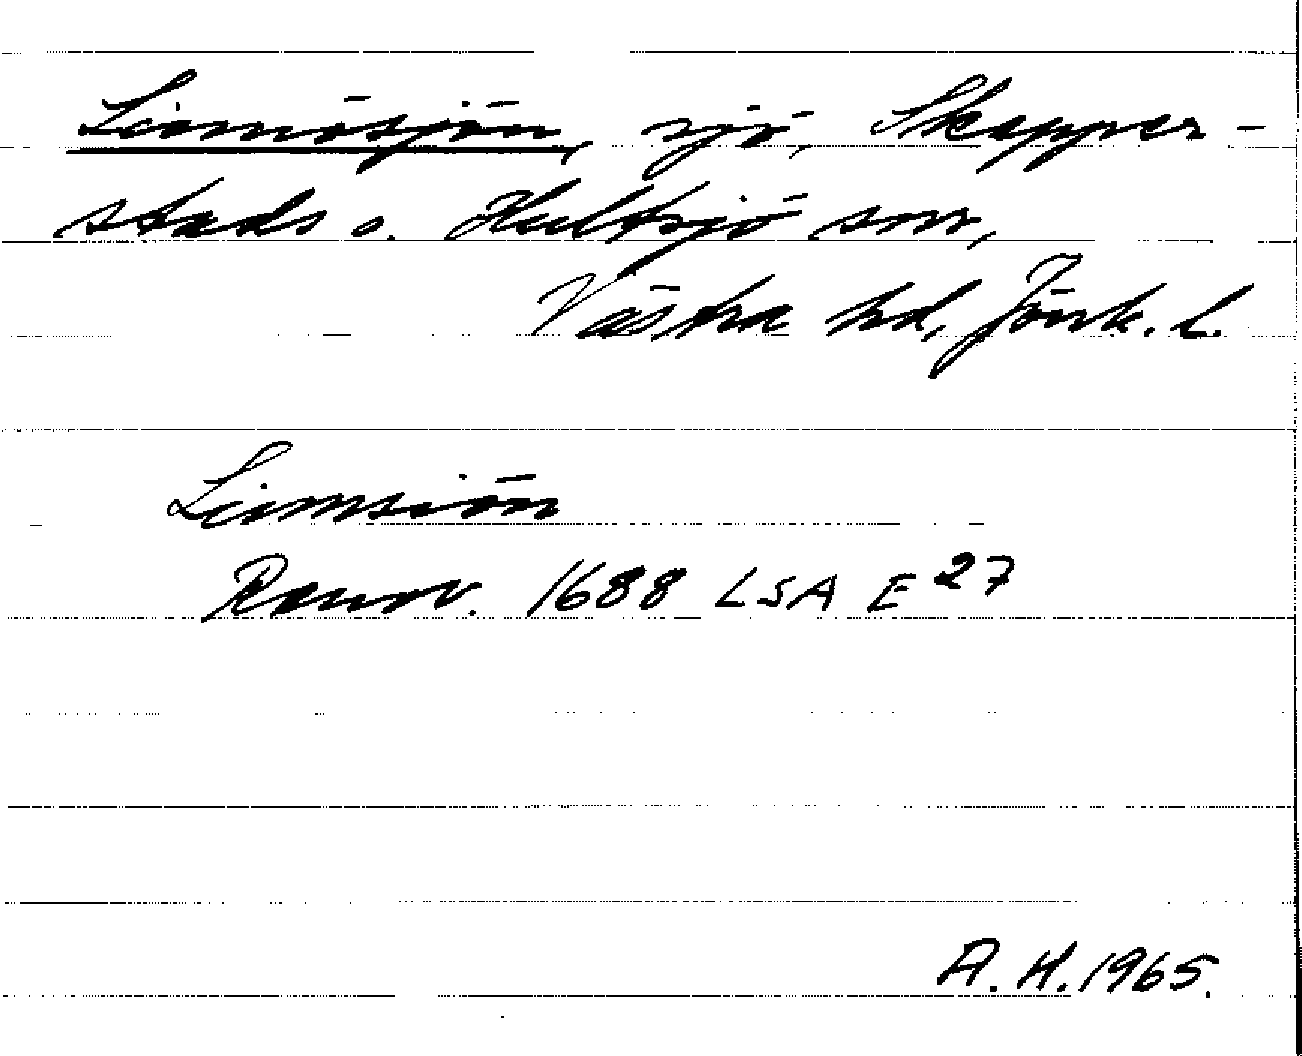 Liomösjön, sjö, Skepper-
stads o. Hultsjö snr,
Västra hd, Jönk. l.
Liomsiön
Rannr. 1688 LSA E 27
A. H. 1965.